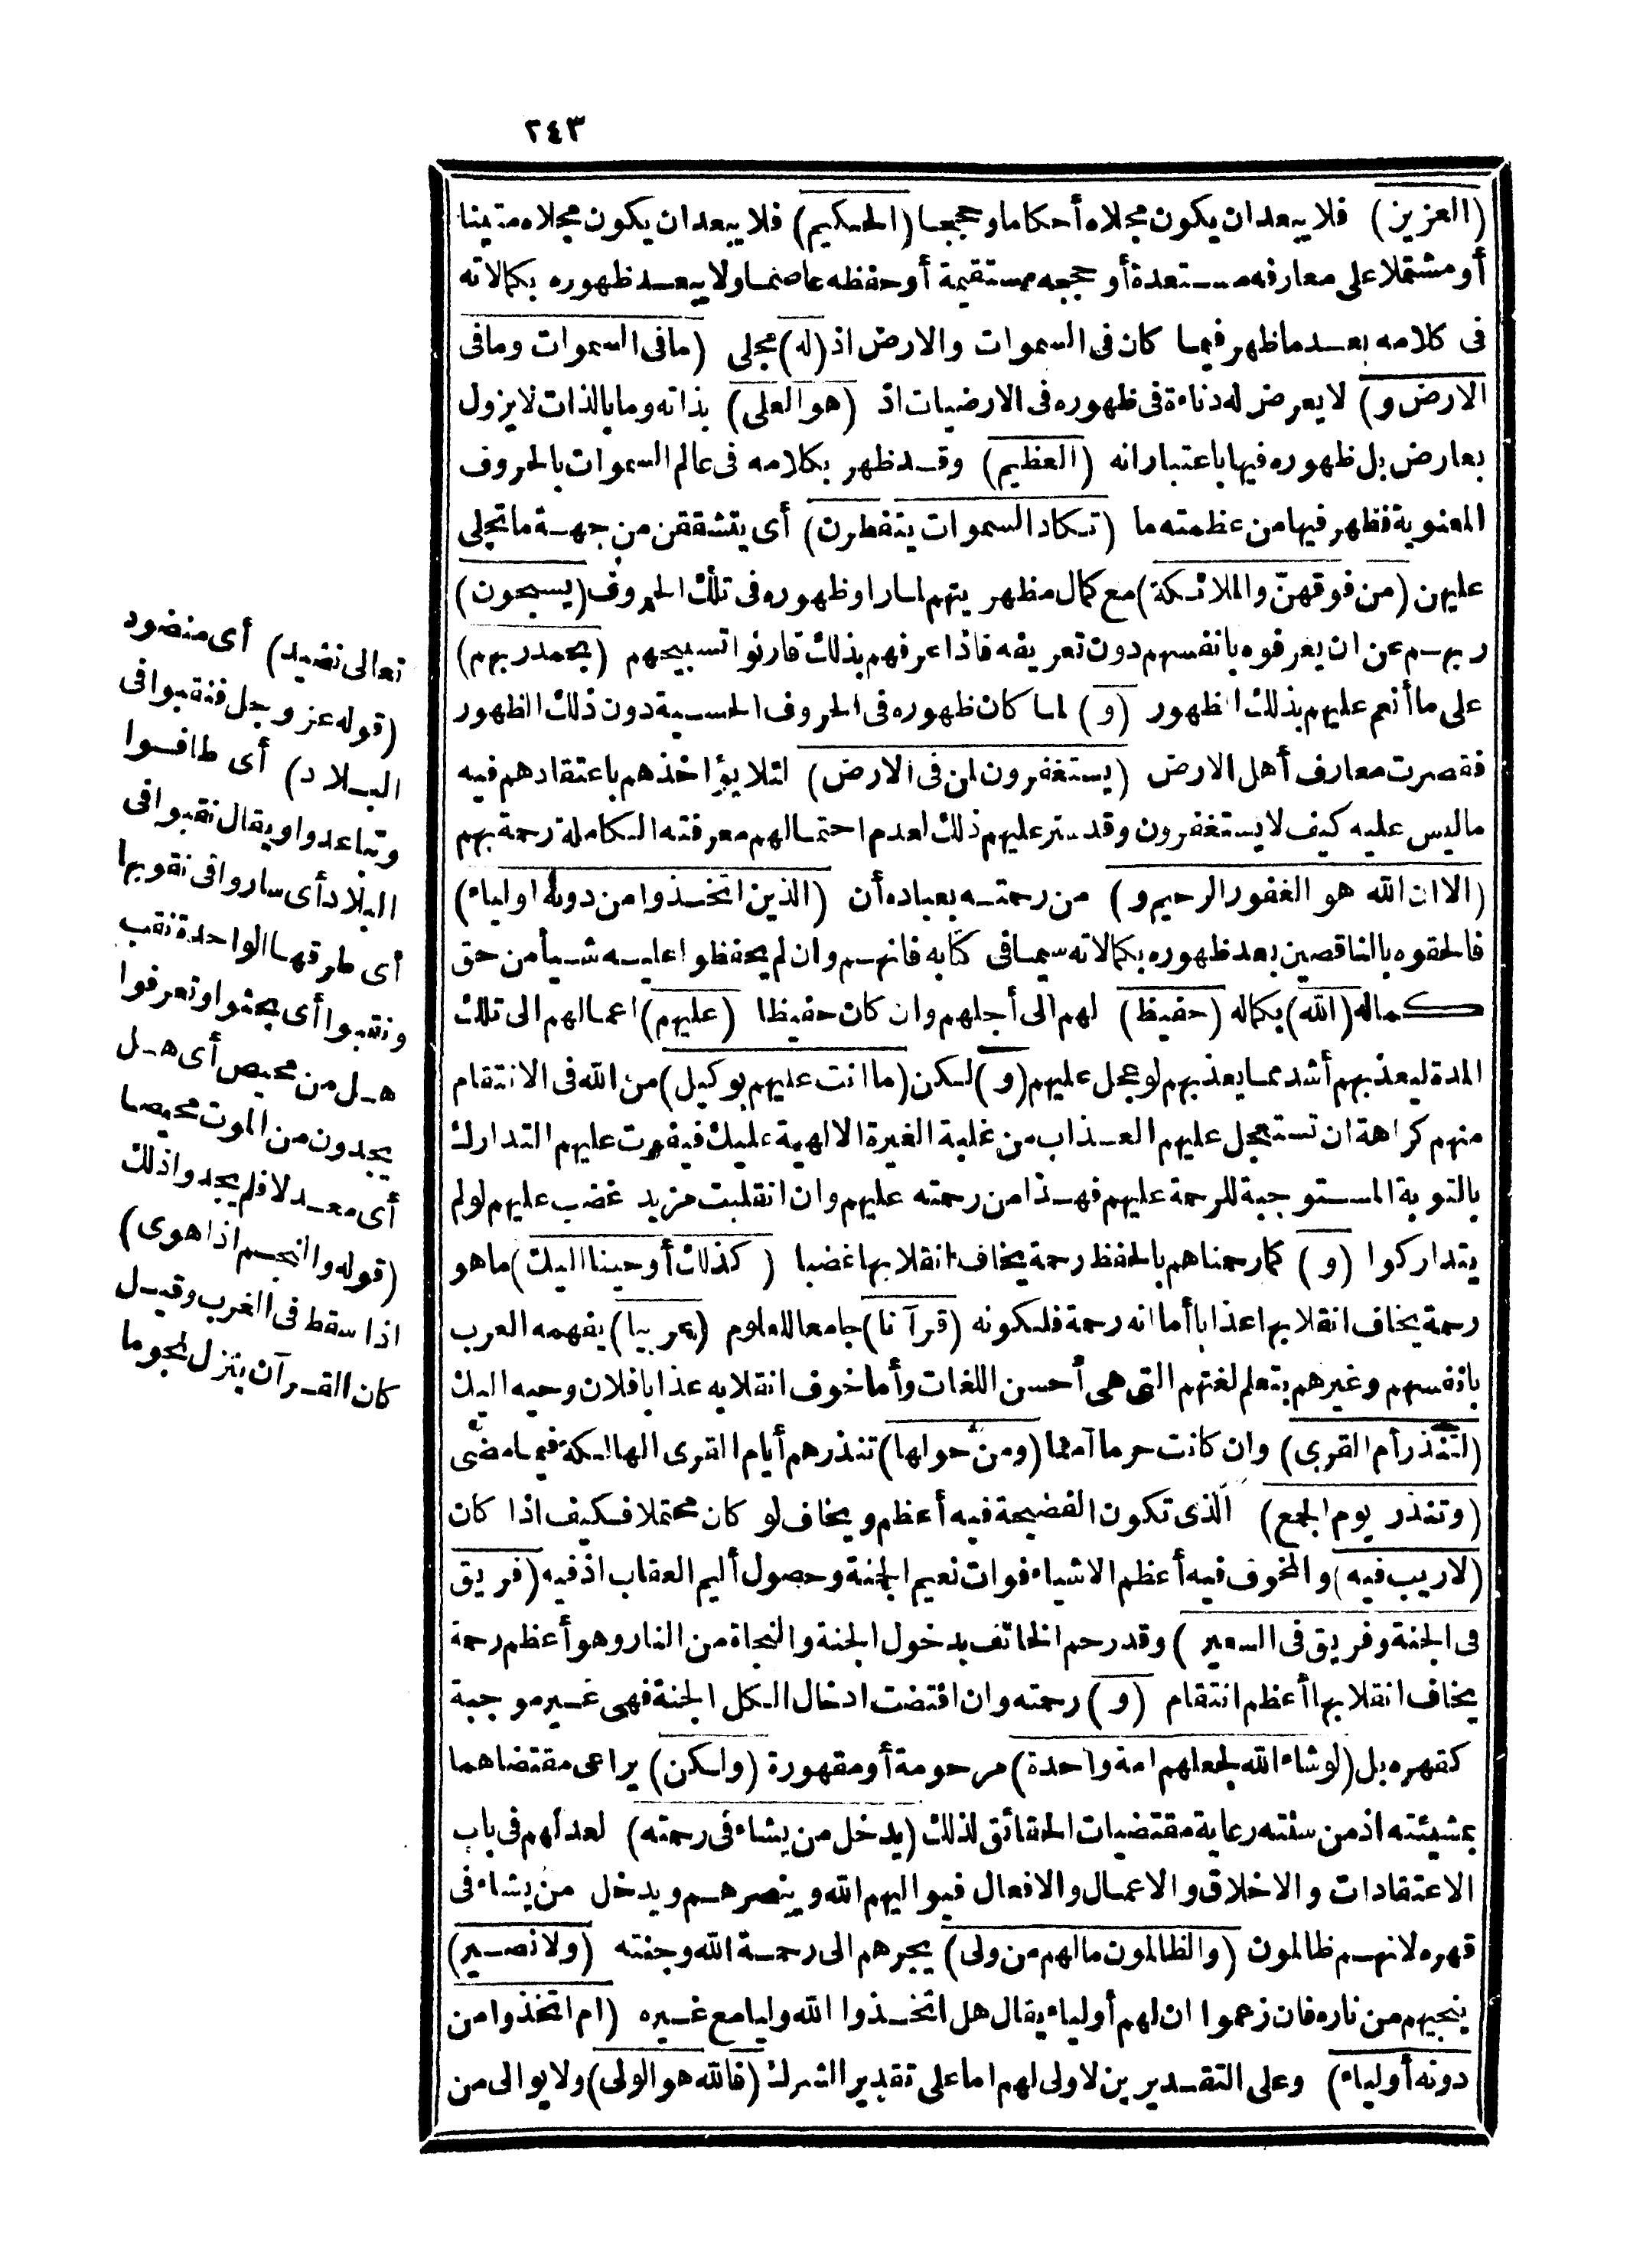 ٢٤٣
(العزيز) فلا يبعد ان يكون مجلاه أحكاما وحججا (الحكيم) فلا يبعد ان يكون مجلاه متينا
أو مشتملا على معارفه مستعدة أو حججه مستقيمة أو حفظه عاصما ولا يبعد ظهوره بكمالاته
فى كلامه بعد ما ظهر فيما كان فى السموات والارض اذ (له) مجلى (مافى السموات ومافى
الارض و) لا يعرض له دناءة فى ظهوره فى الارضيات اذ (هو العلى) بذاته وما بالذات لا يزول
بعارض بل ظهوره فيها باعتبار انه (العظيم) وقد ظهر بكلامه فى عالم السموات بالحروف
المعنوية فظهر فيها من عظمته ما (تكاد السموات يتفطرن) أى يتشققن من جهة ما تجلى
عليهن (من فوقهنّ والملائكة) مع كمال مظهريتهم لما رأوا ظهوره فى تلك الحروف (يسبحون)
ربهم عن ان يعرفوه بانفسهم دون تعريفه فاذا عرفهم بذلك قارنوا تسبيحهم (بحمد ربهم)
على ما أنعم عليهم بذلك الظهور (و) لما كان ظهوره فى الحروف الحسية دون ذلك الظهور
فقصرت معارف أهل الارض (يستغفرون لمن فى الارض) لئلا يؤاخذهم باعتقادهم فيه
ما ليس عليه كيف لا يستغفرون وقد ستر عليهم ذلك لعدم احتمالهم معرفته الكاملة رحمة بهم
(الا ان الله هو الغفور الرحيم و) من رحمته بعباده أن (الذين اتخذوا من دونه اولياء)
فالحقوه بالناقصين بعد ظهوره بكمالاته سيما فى كتابه فانهم وان لم يحفظوا عليه شيأ من حق
كماله (الله) بكماله (حفيظ) لهم الى أجلهم وان كان حفيظا (عليهم) اعمالهم الى تلك
المدة ليعذبهم أشد مما يعذبهم لو عجل عليهم (و) لكن (ما انت عليهم بوكيل) من الله فى الانتقام
منهم كراهة ان تستعجل عليهم العذاب من غلبة الغيرة الالهية عليك فيفوت عليهم التدارك
بالتوبة المستوجبة للرحمة عليهم فهذا من رحمته عليهم وان انقلبت مزيد غضب عليهم لو لم
يتداركوا (و) كما رحمناهم بالحفظ رحمة يخاف انقلابها غضبا (كذلك أوحينا اليك) ما هو
رحمة يخاف انقلابها عذابا أما انه رحمة فلكونه (قرآنا) جامعا للعلوم (عربيا) يفهمه العرب
بانفسهم وغيرهم بتعلم لغتهم التى هى أحسن اللغات وأما خوف انقلابه عذابا فلان وحيه اليك
(لتنذر أم القرى) وان كانت حرما آمنا (ومن حولها) تنذرهم أيام القرى الهالكة فيما مضى
(وتنذر يوم الجمع) الذى تكون الفضيحة فيه أعظم ويخاف لو كان محتملا فكيف اذا كان
(لاريب فيه) والمخوف فيه أعظم الاشياء فوات نعيم الجنة وحصول أليم العقاب اذ فيه (فريق
فى الجنة وفريق فى السعير) وقد رحم الخائف بدخول الجنة والنجاة من النار وهو أعظم رحمة
يخاف انقلابها أعظم انتقام (و) رحمته وان اقتضت ادخال الكل الجنة فهى غير موجبة
كقهره بل (لو شاء الله لجعلهم امة واحدة) مرحومة أو مقهورة (ولكن) يراعى مقتضاهما
بمشيئته اذ من سنته رعاية مقتضيات الحقائق لذلك (يدخل من يشاء فى رحمته) لعدلهم فى باب
الاعتقادات والاخلاق والاعمال والافعال فيواليهم الله وينصرهم ويدخل من يشاء فى
قهره لانهم ظالمون (والظالمون مالهم من ولى) يجرهم الى رحمة الله وجنته (ولا نصير)
ينجيهم من ناره فان زعموا ان لهم أولياء يقال هل اتخذوا الله وليا مع غيره (ام اتخذوا من
دونه أولياء) وعلى التقديرين لا ولى لهم اما على تقدير الشرك (فالله هو الولى) ولا يوالى من
تعالى نضيد) أى منضود
(قوله عز وجل فنقبوا فى
البلاد) أى طافوا
وتباعدوا ويقال نقبوا فى
البلاد أى ساروا فى نقوبها
أى طرقها الواحدة نقب
ونقبوا أى بحثوا وتعرفوا
هل من محيص أى هل
يجدون من الموت محيصا
أى معدلا فلم يجدوا ذلك
(قوله والنجم اذا هوى)
اذا سقط فى الغرب وقيل
كان القرآن ينزل نجوما